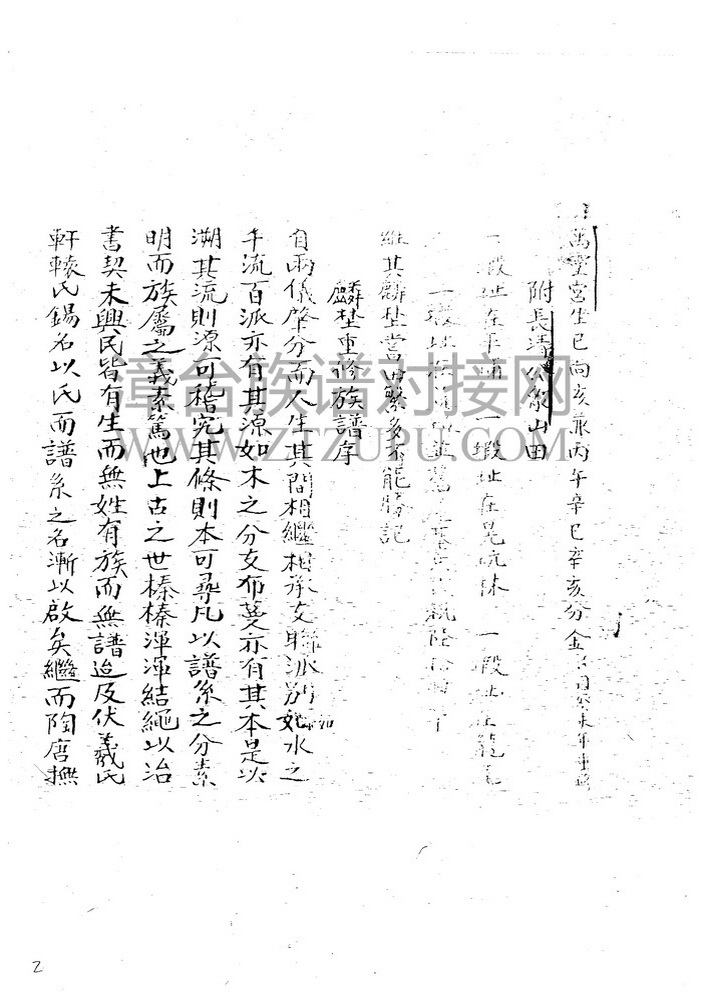 萬豐宮坐巳向亥兼丙午辛巳辛亥分金
附長清公家山田
一塅址在 一塅址在晃坑 一塅址在龍
一塅址在
維其麟埜當田繁多不能勝記
麟埜重修族譜序
自兩儀肇分而人生其間相繼相承支聯派別如水之
千流百派亦有其源如木之分支布蔓亦有其本是以
溯其流則源可稽究其條則本可尋凡以譜系之分素
明而族屬之義素篤也上古之世榛榛渾渾結繩以治
書契未興民皆有生而無姓有族而無譜迨及伏羲氏
軒轅氏錫名以氏而譜系之名漸以啟矣繼而陶唐撫
章台族谱对接网
WWW.ZTZUPU.COM
2